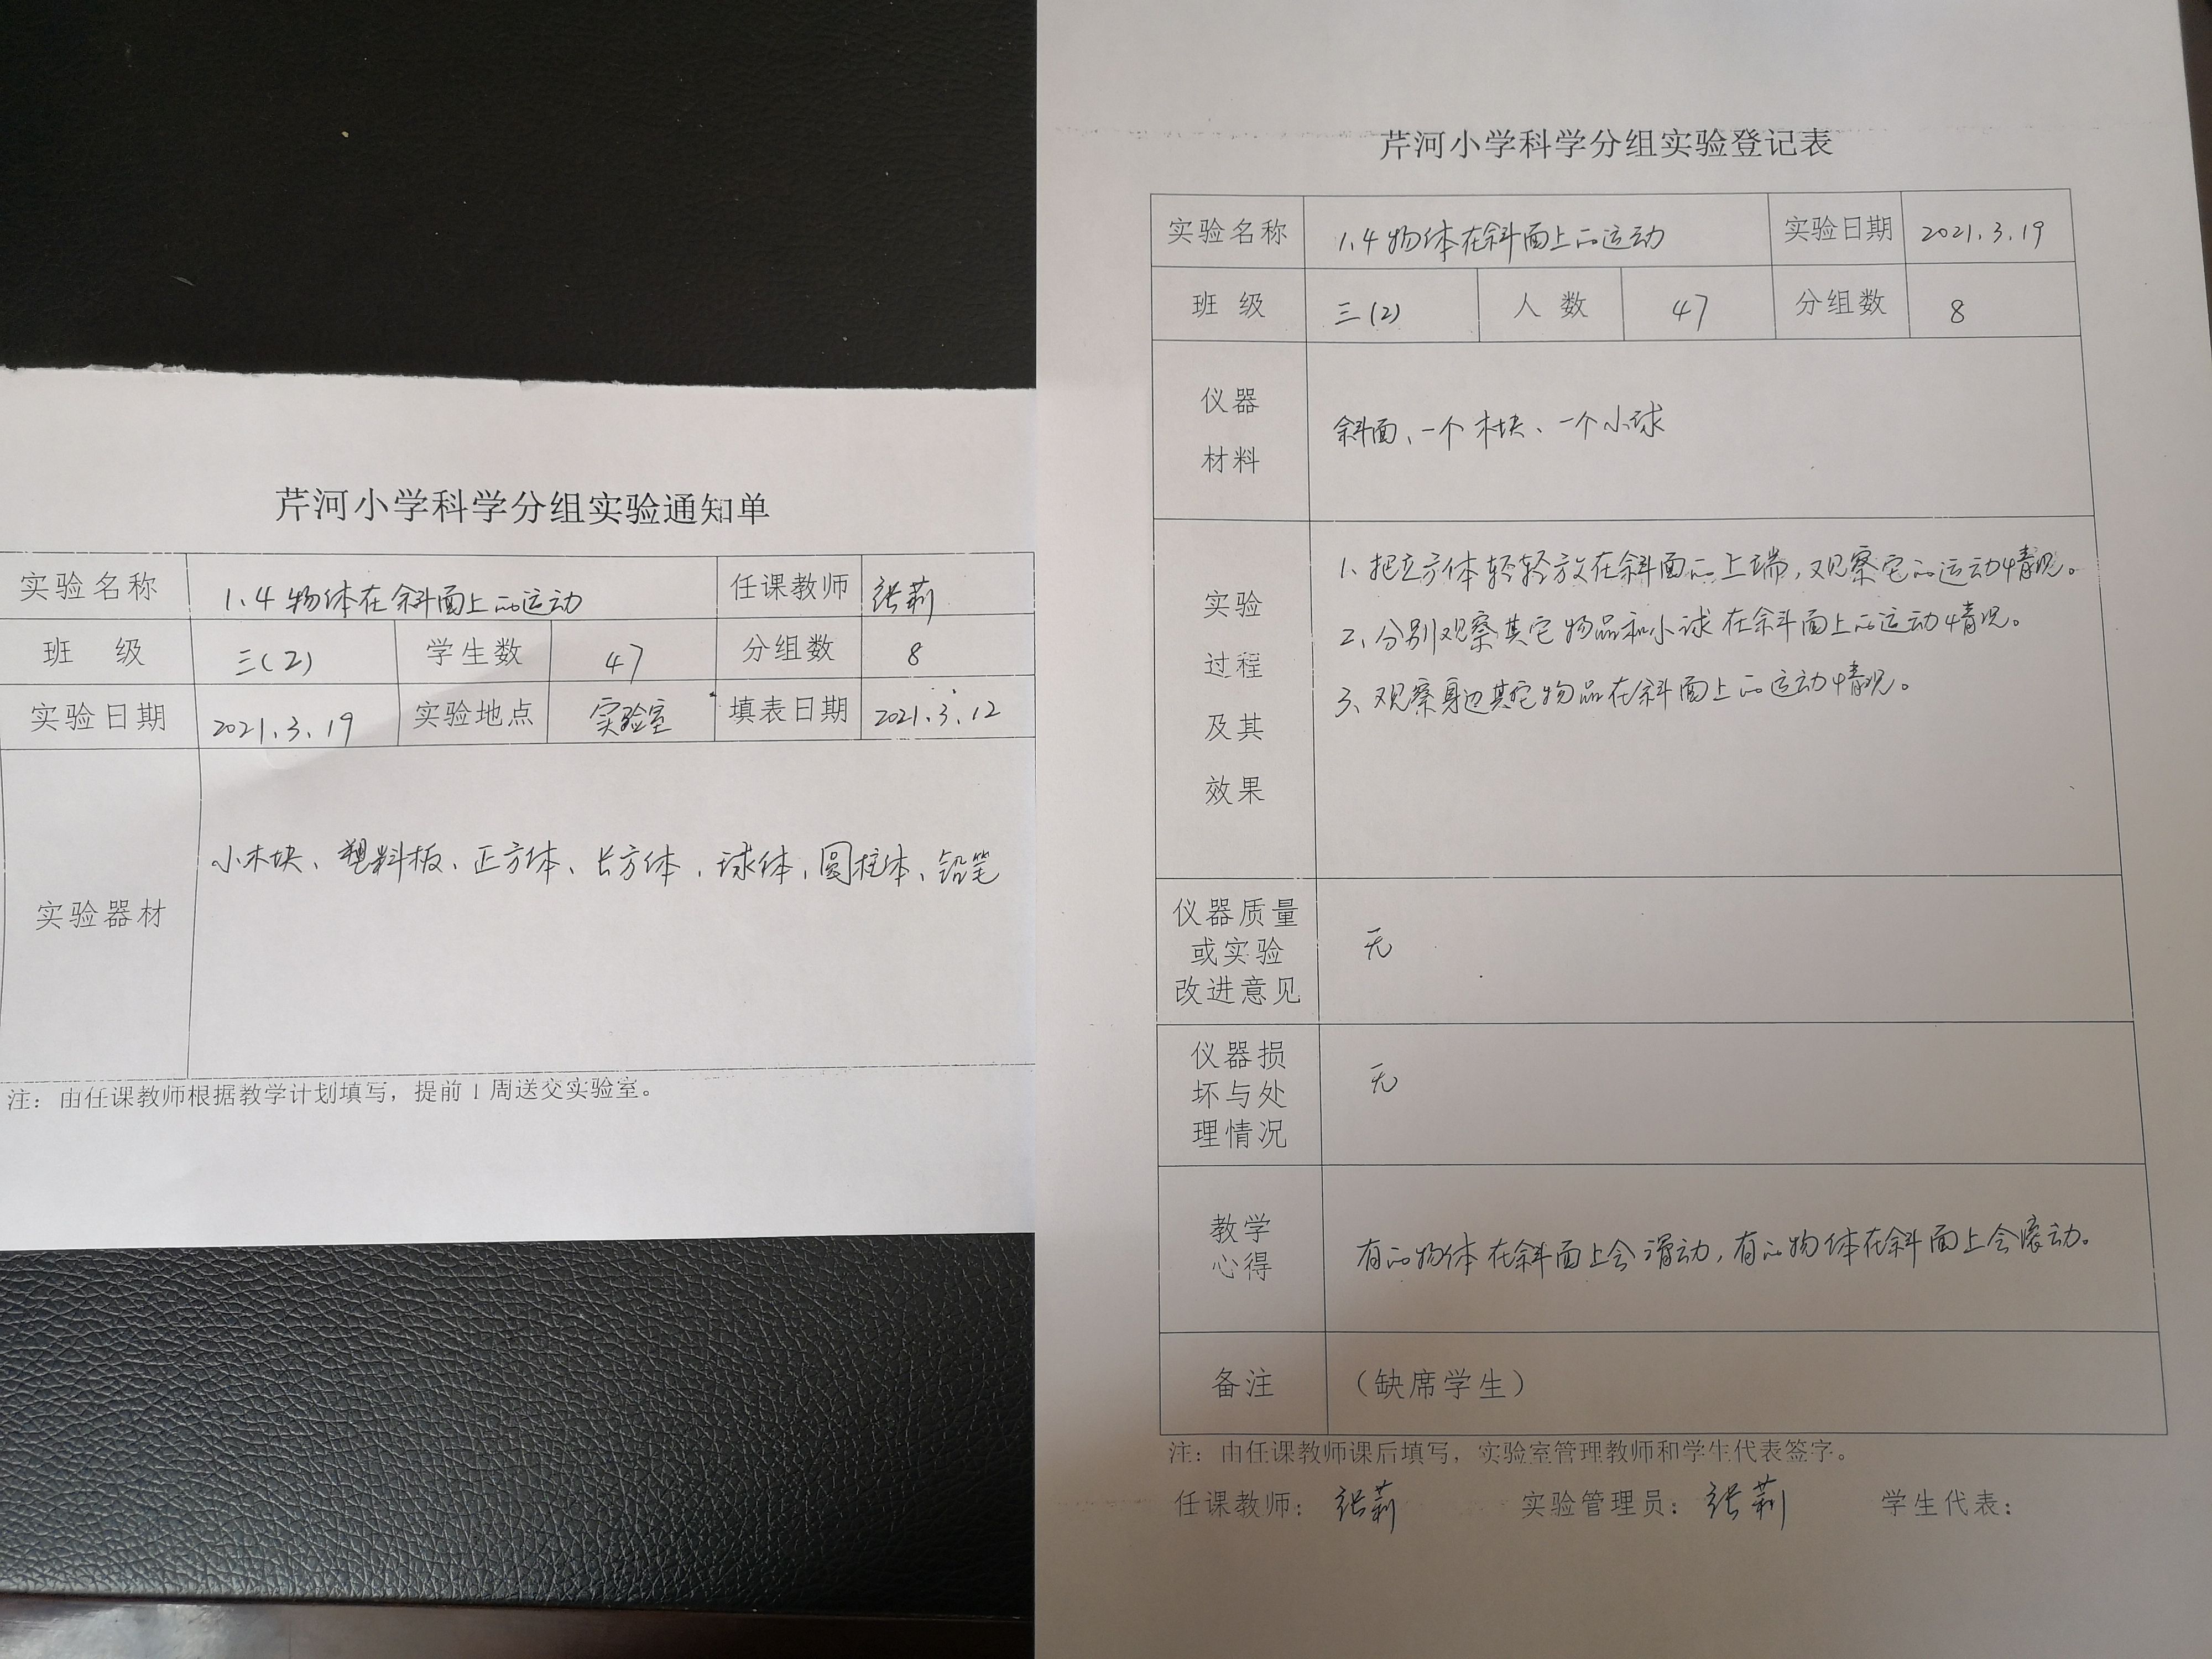 芹河小学科学分组实验通知单
实验名称 1.4 物体在斜面上的运动 任课教师 张莉
班 级 三(2) 学生数 47 分组数 8
实验日期 2021.3.19 实验地点 实验室 填表日期 2021.3.12
实验器材 小木块、塑料板、正方体、长方体、球体、圆柱体、铅笔
注：由任课教师根据教学计划填写，提前1周送交实验室。
芹河小学科学分组实验登记表
实验名称 1.4 物体在斜面上的运动 实验日期 2021.3.19
班 级 三(2) 人 数 47 分组数 8
仪器
材料
斜面、一个木块、一个小球
实验
过程
及其
效果
1、把立方体轻轻放在斜面的上端，观察它的运动情况。
2、分别观察其它物品和小球在斜面上的运动情况。
3、观察身边其它物品在斜面上的运动情况。
仪器质量
或实验
改进意见
无
仪器损
坏与处
理情况
无
教学
心得
有的物体在斜面上会滑动，有的物体在斜面上会滚动。
备注 （缺席学生）
注：由任课教师课后填写，实验室管理教师和学生代表签字。
任课教师：张莉 实验管理员：张莉 学生代表：